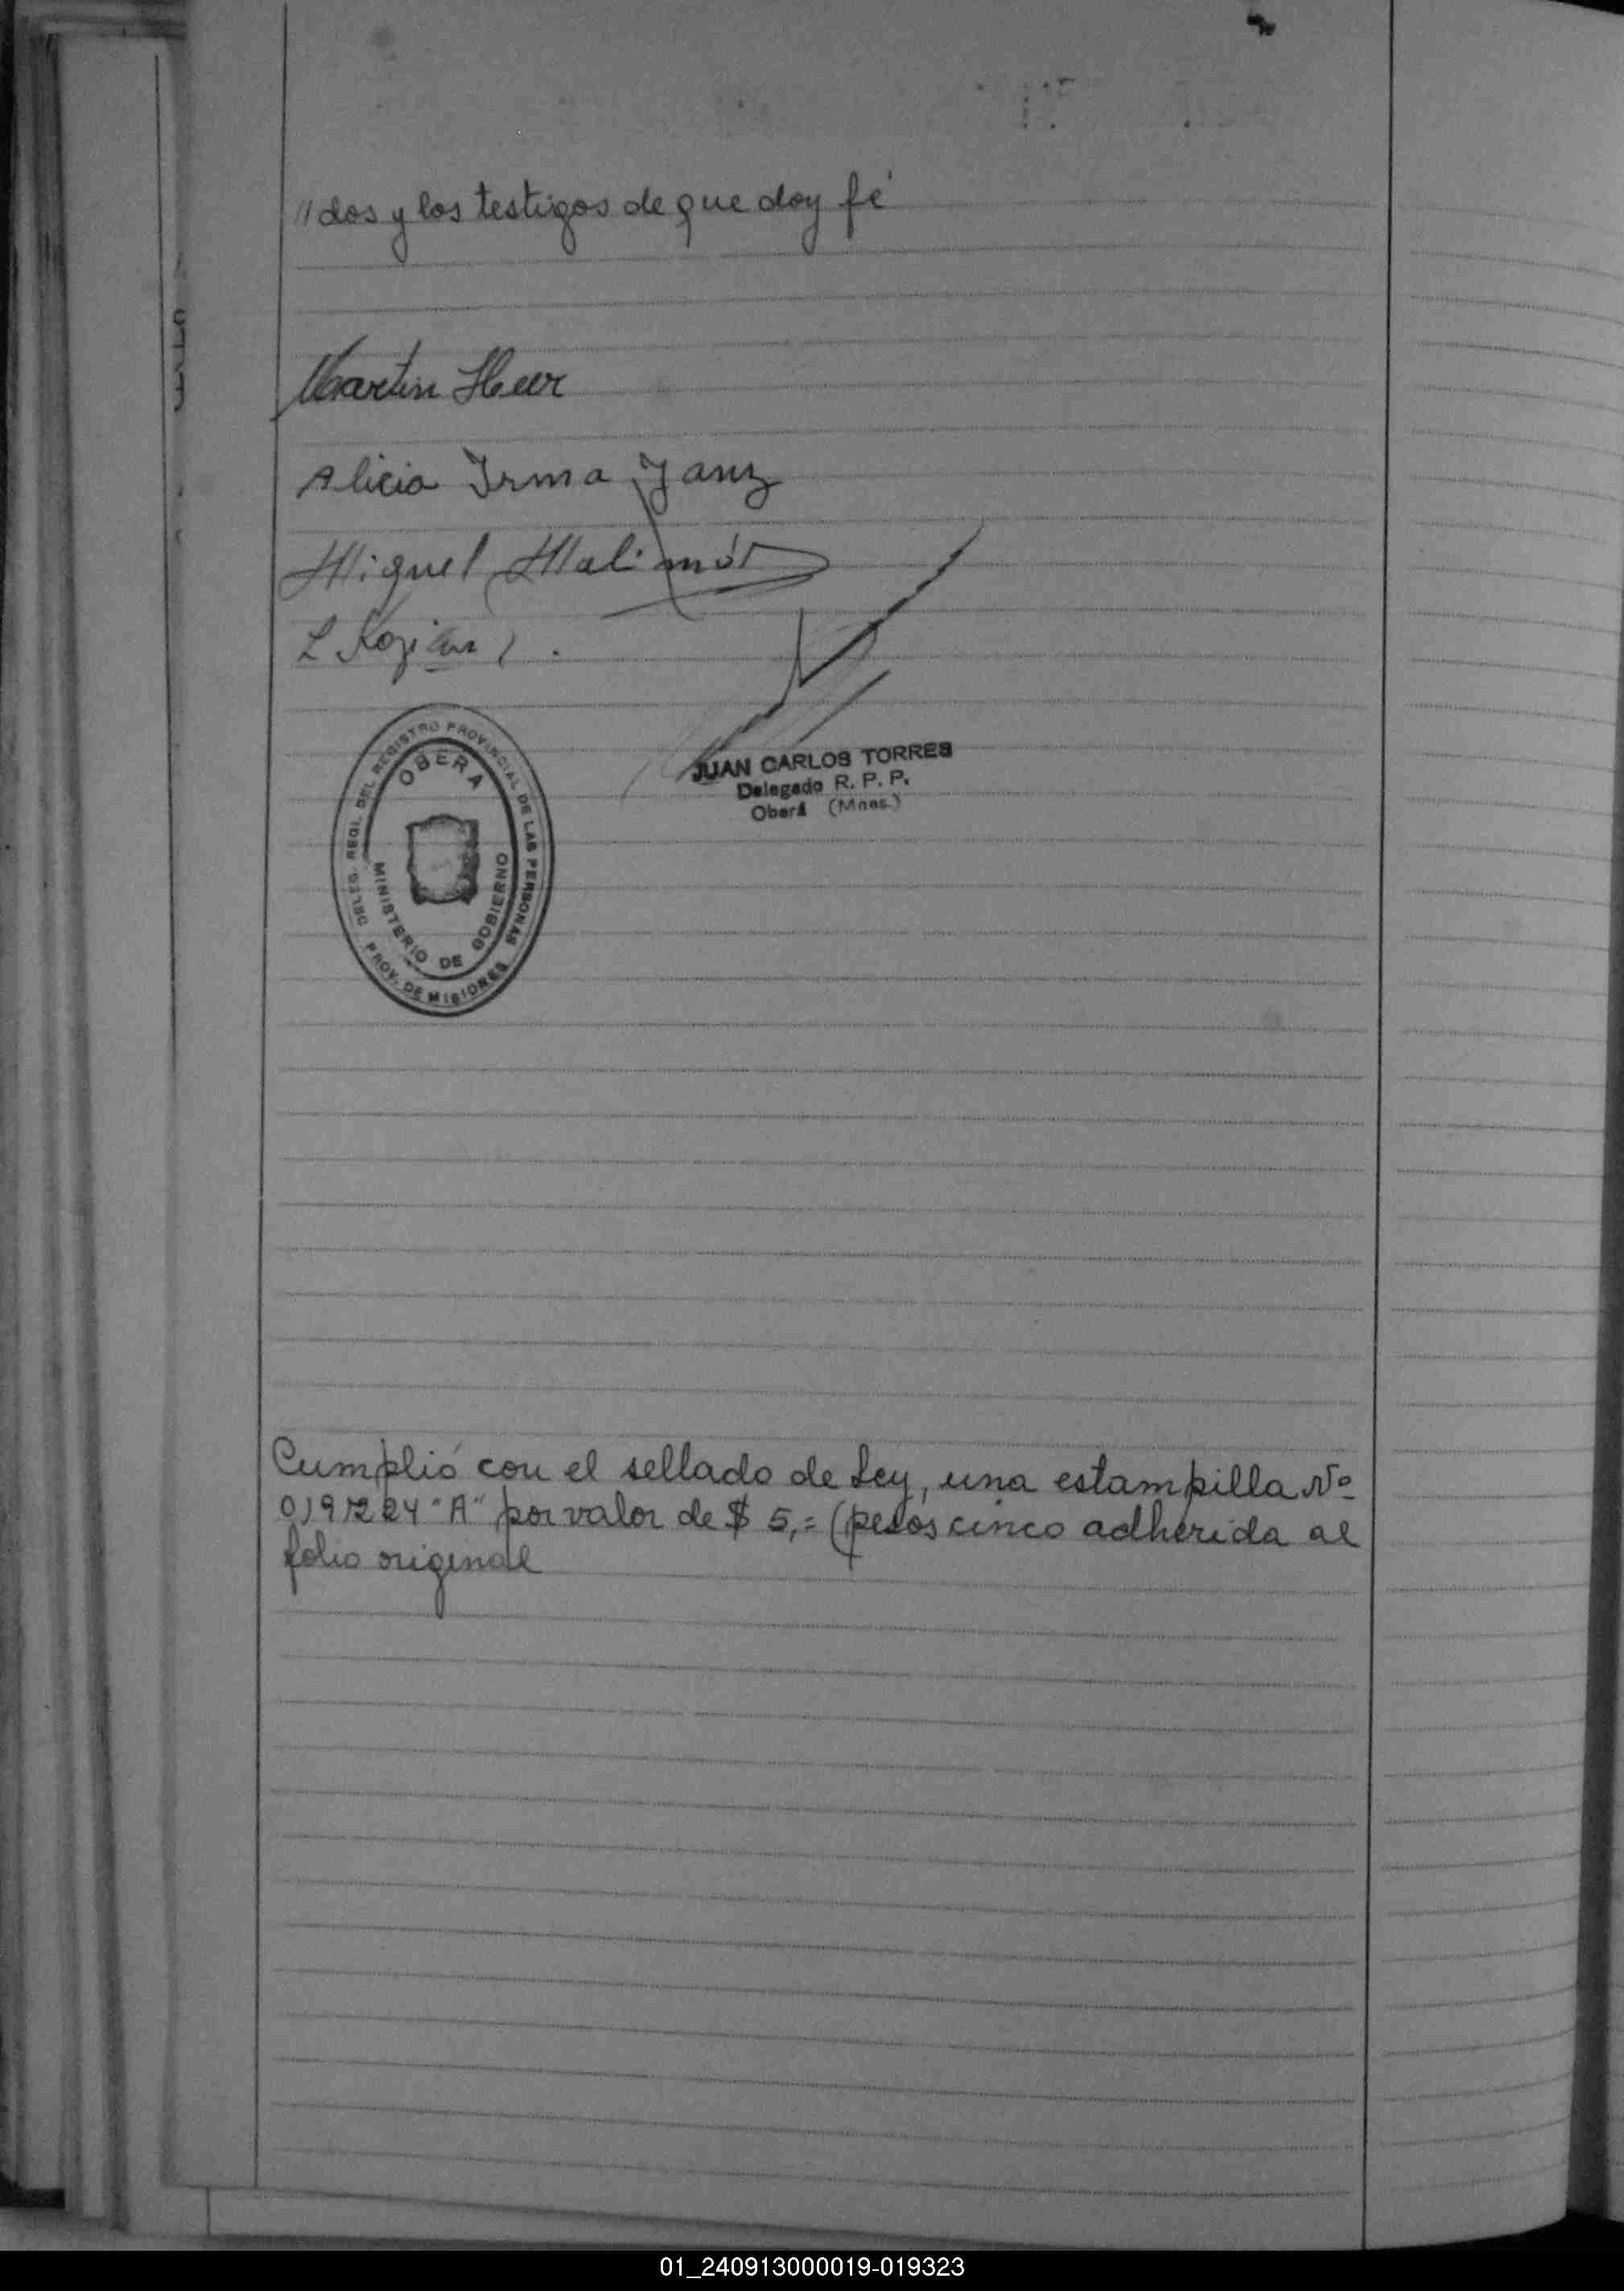 // dos y los testigos de que doy fé
Martin Heer
Alicia Irma Janz
Miguel
L
DELEG. REGI. DEL REGISTRO PROVINCIAL DE LAS PERSONAS
OBERA
MINISTERIO DE GOBIERNO
PROV. DE MISIONES
JUAN CARLOS TORRES
Delegado R. P. P.
Oberá (Mnes.)
Cumplió con el sellado de Ley, una estampilla Nº
"A" por valor de $ 5,= (pesos cinco adherida al
folio original
01_240913000019-019323